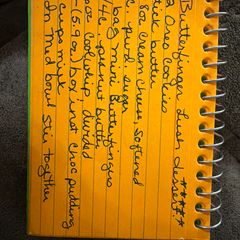 Butterfinger Lush Dessert *****
Oreo cookies
stick butter
8oz cream cheese, softened
c. powd sugar
bag mini Butterfingers
/4c peanut butter
oz coolwhip, divided
(5.9 oz) box inst choc pudding
cups milk
In med bowl stir together